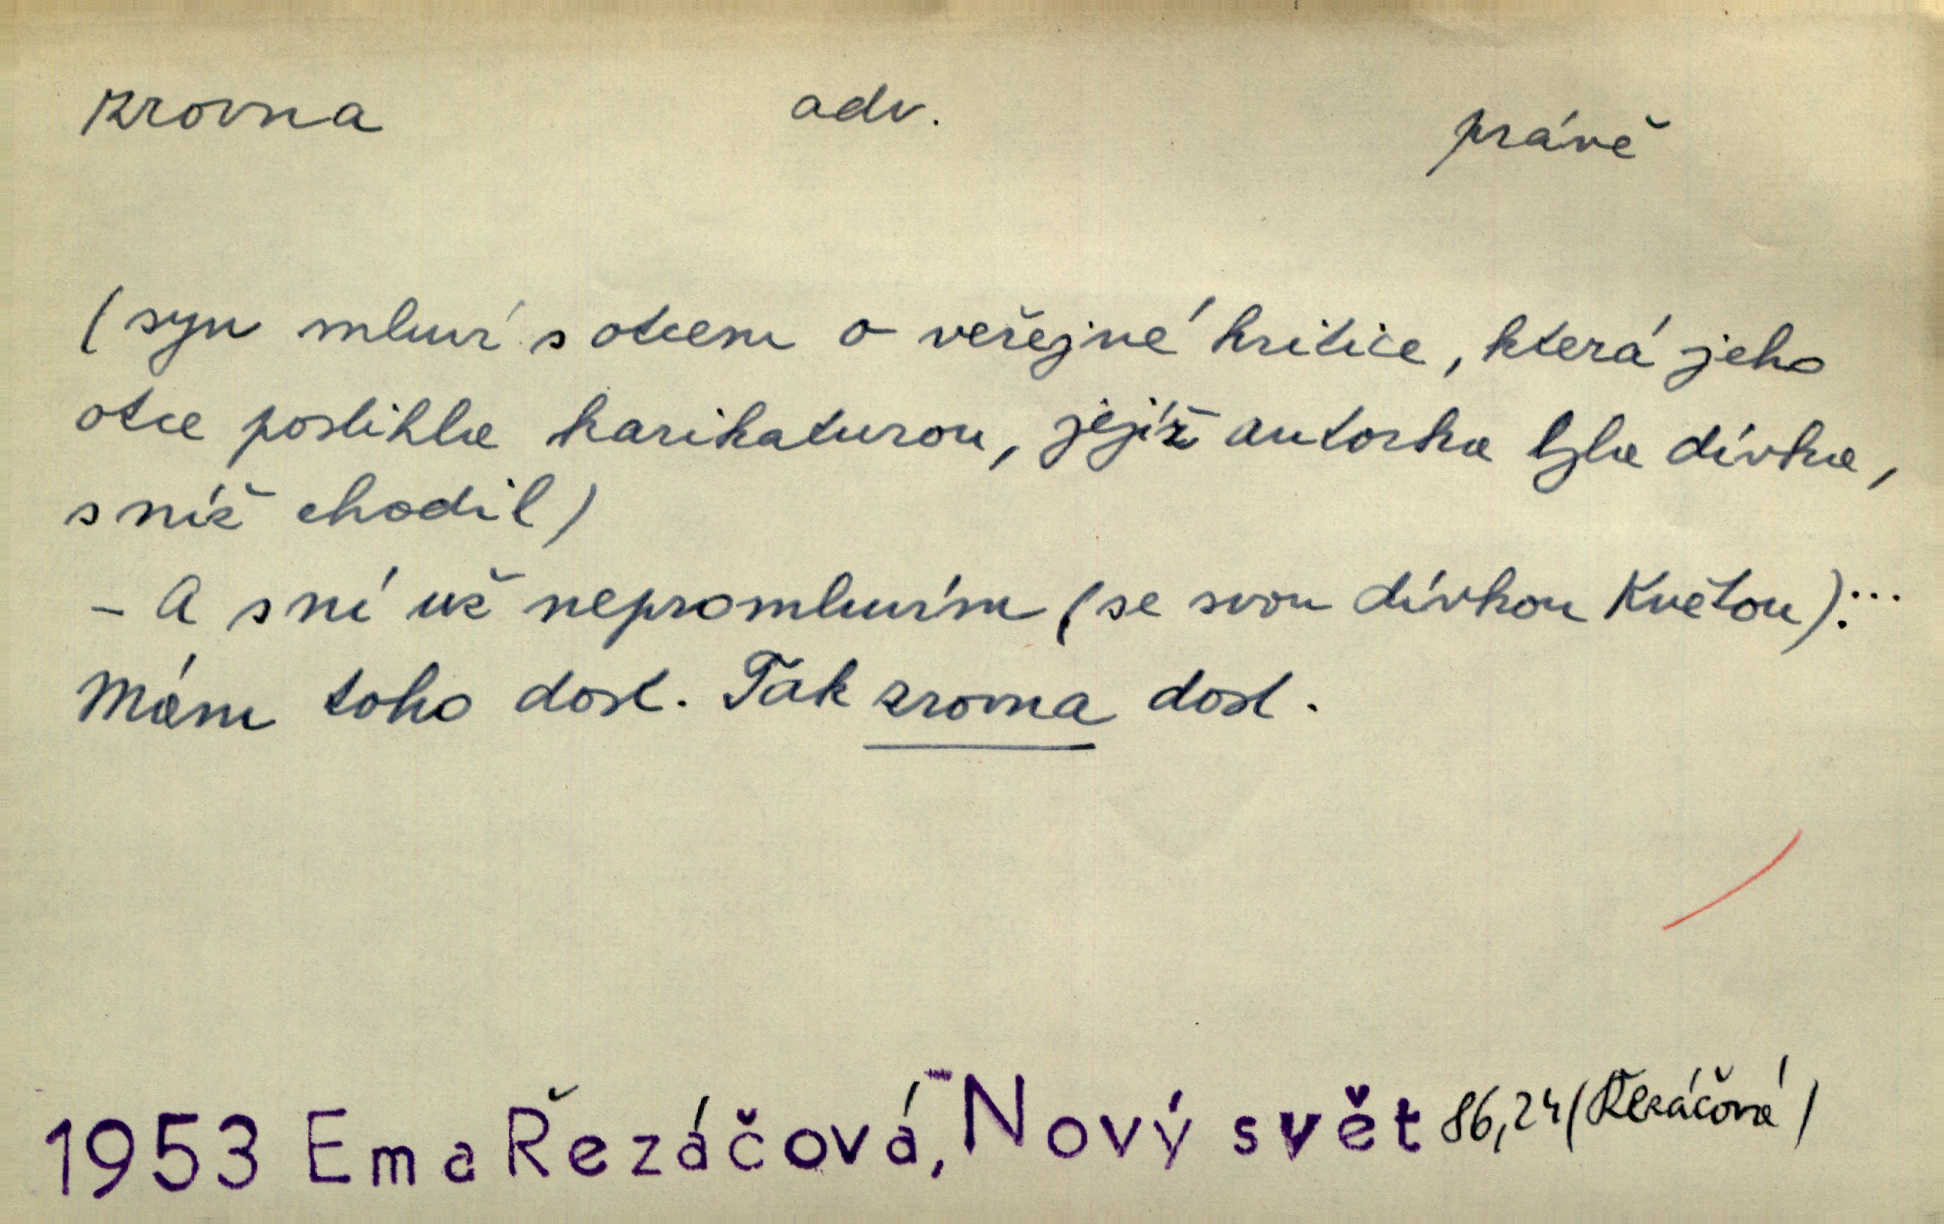 zrovna adv. právě
(syn mluví s otcem o veřejné kritice, která jeho
otce postihla karikaturou, jejíž autorka byla dívka,
s níž chodil)
– A s ní už nepromluvím (se svou dívkou Květou)...
Mám toho dost. Tak zrovna dost.
1953 Ema Řezáčová, Nový svět 86,24 (Řezáčová)